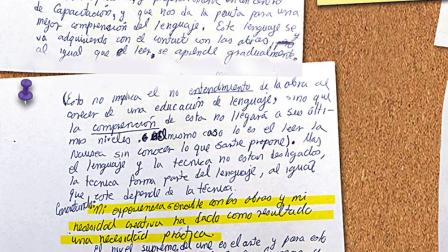 de capacitación, y que nos da la pauta para una
mejor comprensión del lenguaje. Este lenguaje se
va adquiriendo con el contacto con las obras,
al igual que el leer, se aprende gradualmente.
(Esto no implica el no entendimiento de la obra al
carecer de una educación de lenguaje, sino que
la comprensión de esta no llegará a sus últi-
mos niveles. mismo caso lo es el leer la
Nausea sin conocer lo que Sartre propone). Mas
el lenguaje y la técnica no están desligados,
la técnica forma parte del lenguaje, al igual
que este depende de la técnica.
"Mi experiencia sensible con las obras y mi
necesidad creativa ha dado como resultado
una necesidad práctica
el nivel supremo del cine es el arte y para esto